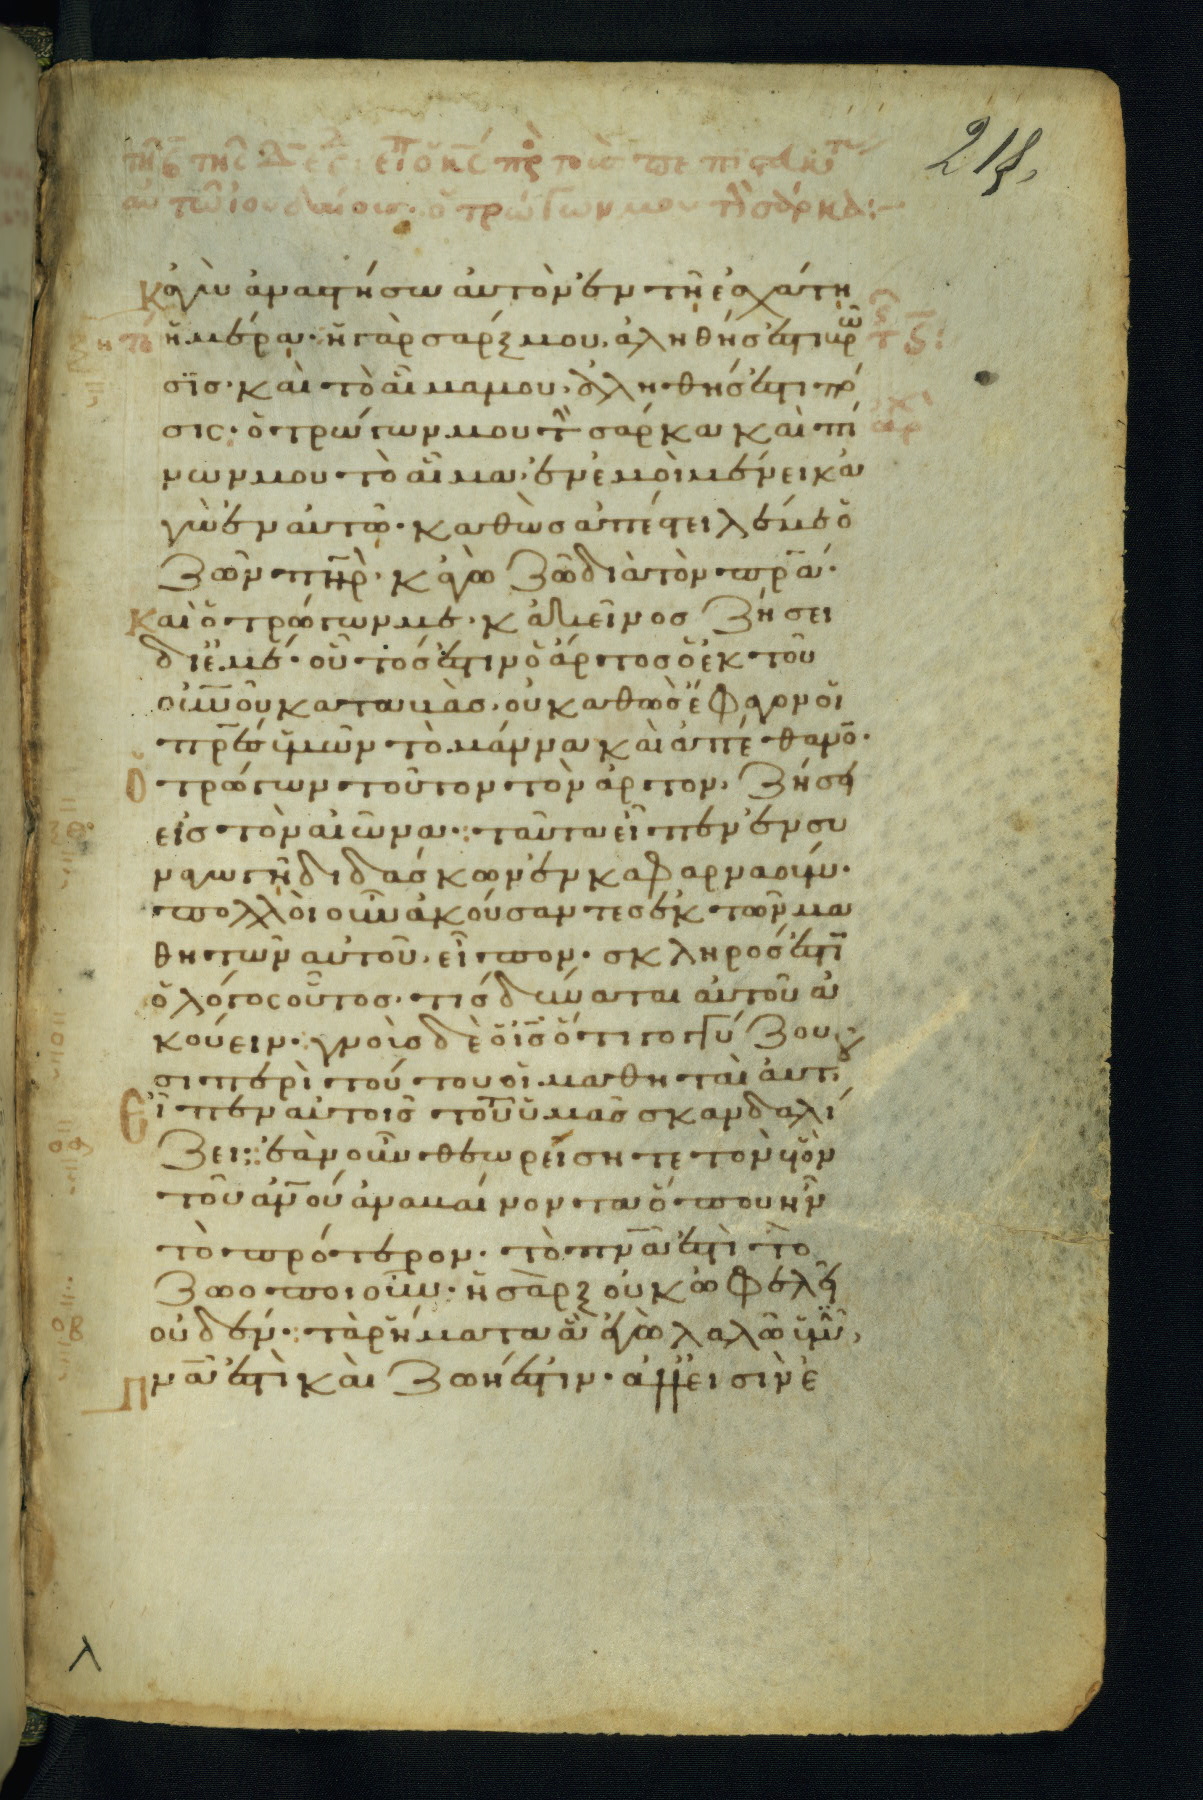 218,
κἀγὼ ἀναστήσω αὐτὸν ἐν τῇ ἐσχάτῃ
ἡμέρᾳ· ἡ γὰρ σάρξ μου, ἀληθής ἐστι βρῶ
σϊς· καὶ τὸ αἷμα μου, ἀληθής ἐστι πό
σις· ὁ τρώγων μου τὴν σάρκα καὶ πί
νων μου τὸ αἷμα, ἐν ἐμοὶ μένει κἀ
γὼ ἐν αὐτῷ· καθὼς ἀπέστειλέ με ὁ
ζῶν πηρ̅· κἀγὼ ζῶ διὰ τὸν πρ̅α·
καὶ ὁ τρώγων με· κἀκεῖνος ζήσει
δι' ἐμέ· οὗτός ἐστιν ὁ ἄρτος ὁ ἐκ τοῦ
οὐν̅οῦ καταβὰς· οὐ καθὼς ἔφαγον οἱ
πρ̅ες ὑμῶν τὸ μάννα καὶ ἀπέθανο̅·
ὁ τρώγων τοῦτον τὸν ἄρτον, ζήσει
εἰς τὸν αἰῶνα· ταῦτα εἶπεν ἐν συ
ναγωγῇ διδάσκων ἐν καφαρναούμ·
πολλοὶ οὖν ἀκούσαντες ἐκ τῶν μα
θητῶν αὐτοῦ, εἶπον· σκληρός ἐστι̅
ὁ λόγος οὗτος· τίς δύναται αὐτοῦ ἀ
κούειν· γνοὺς δὲ ὁ ἰς̅ ὅτι γογγύζου
σι περὶ τούτου οἱ μαθηταὶ αὐτοῦ
εἶπεν αὐτοῖς τοῦτο ὑμᾶς σκανδαλί
ζει· ἐὰν οὖν θεωρεῖσητε τὸν υἱὸν
τοῦ ἀν̅ου ἀναβαίνοντα ὅπου ἦν
τὸ πρότερον· τὸ πνα̅ ἐστὶ τὸ
ζωοποιοῦν· ἡ σὰρξ οὐκ ὠφελεῖ
οὐδέν· τὰ ῥήματα ἃ ἐγὼ λαλῶ ὑμῖν,
πνα̅ ἐστὶ καὶ ζωή ἐστιν· ἀλλ' εἰσὶν ἐ